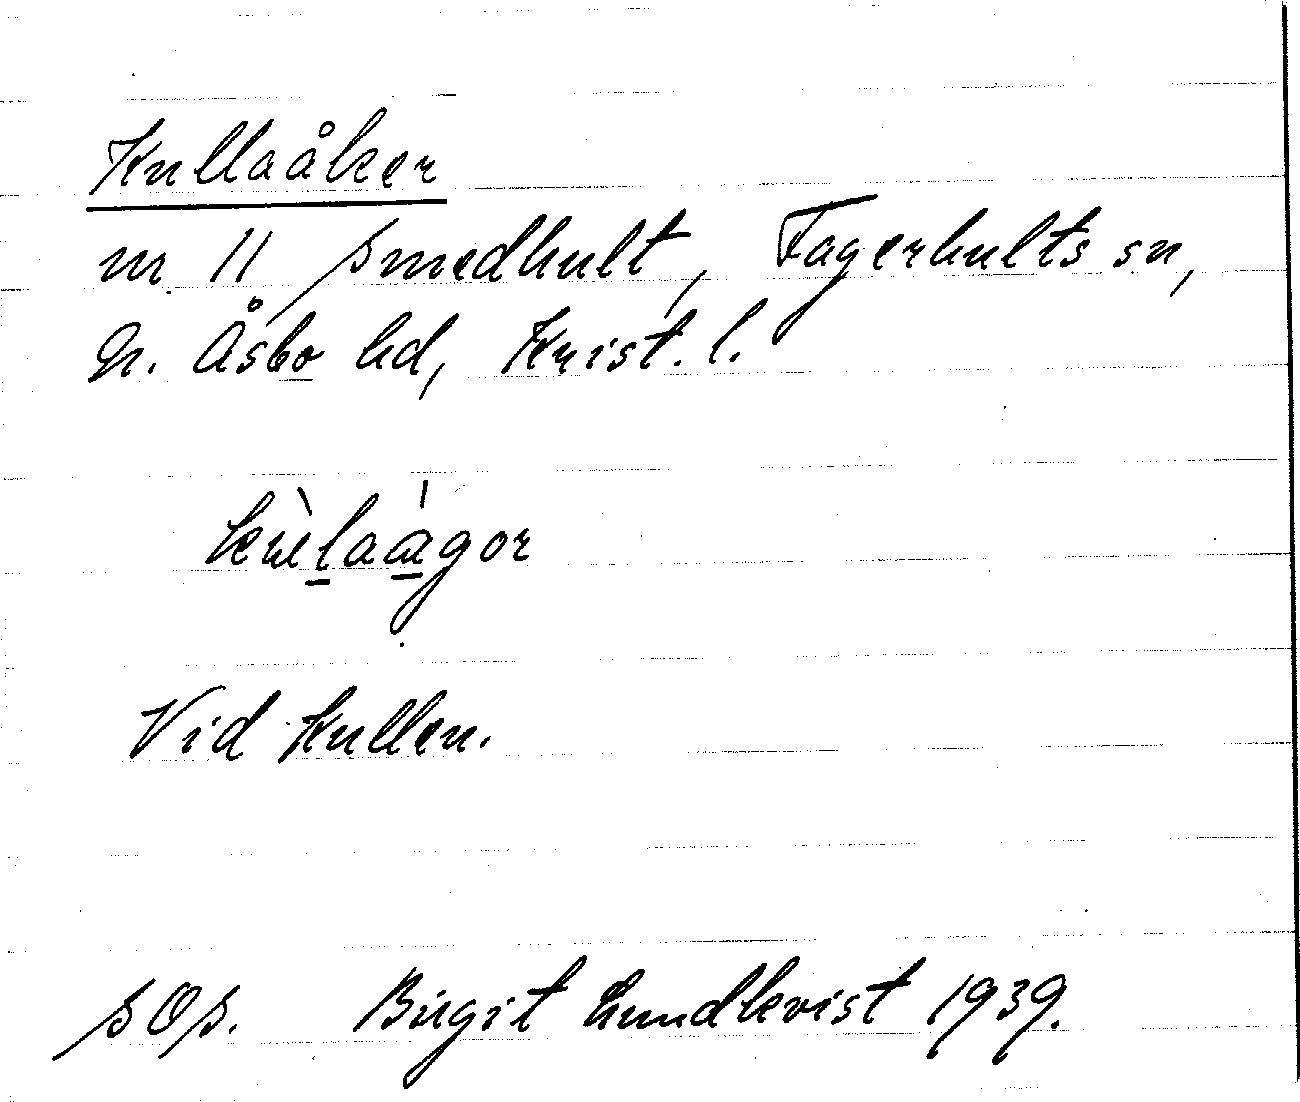 Kullaåker
nr 11 Smedhult, Fagerhults sn,
N. Åsbo hd, Krist. l.
Vid Kullen.
SOS. Birgit Lundkvist 1939.